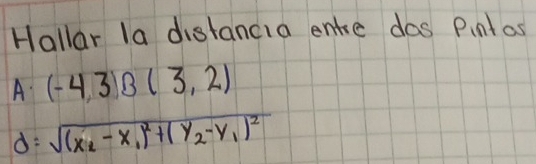 Hallar la distancia entre dos Pintos
A. (-4,3)B(3,2)
d=√(x₂-x₁)²+(y₂-y₁)²